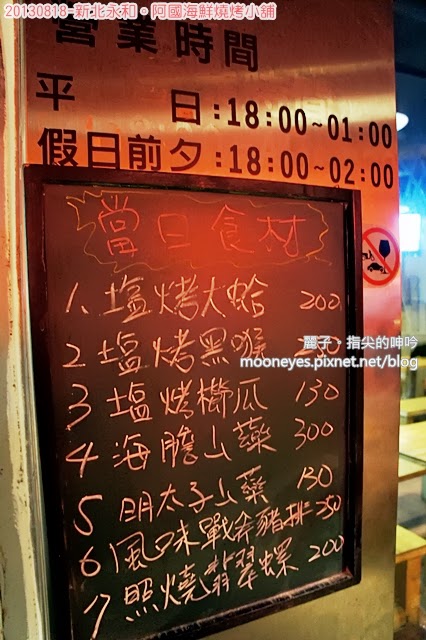 20130818-新北永和。阿國海鮮燒烤小舖
營業時間
平 日:18:00~01:00
假日前夕:18:00~02:00
當日食材
1、塩烤大蛤 200
2 塩烤黑喉
3 塩烤櫛瓜 130
4 海膽山藥 300
5 明太子山藥 130
6 風味戰斧豬排 250
7 照燒翡翠螺 200
麗子。指尖的呻吟
mooneyes.pixnet.net/blog